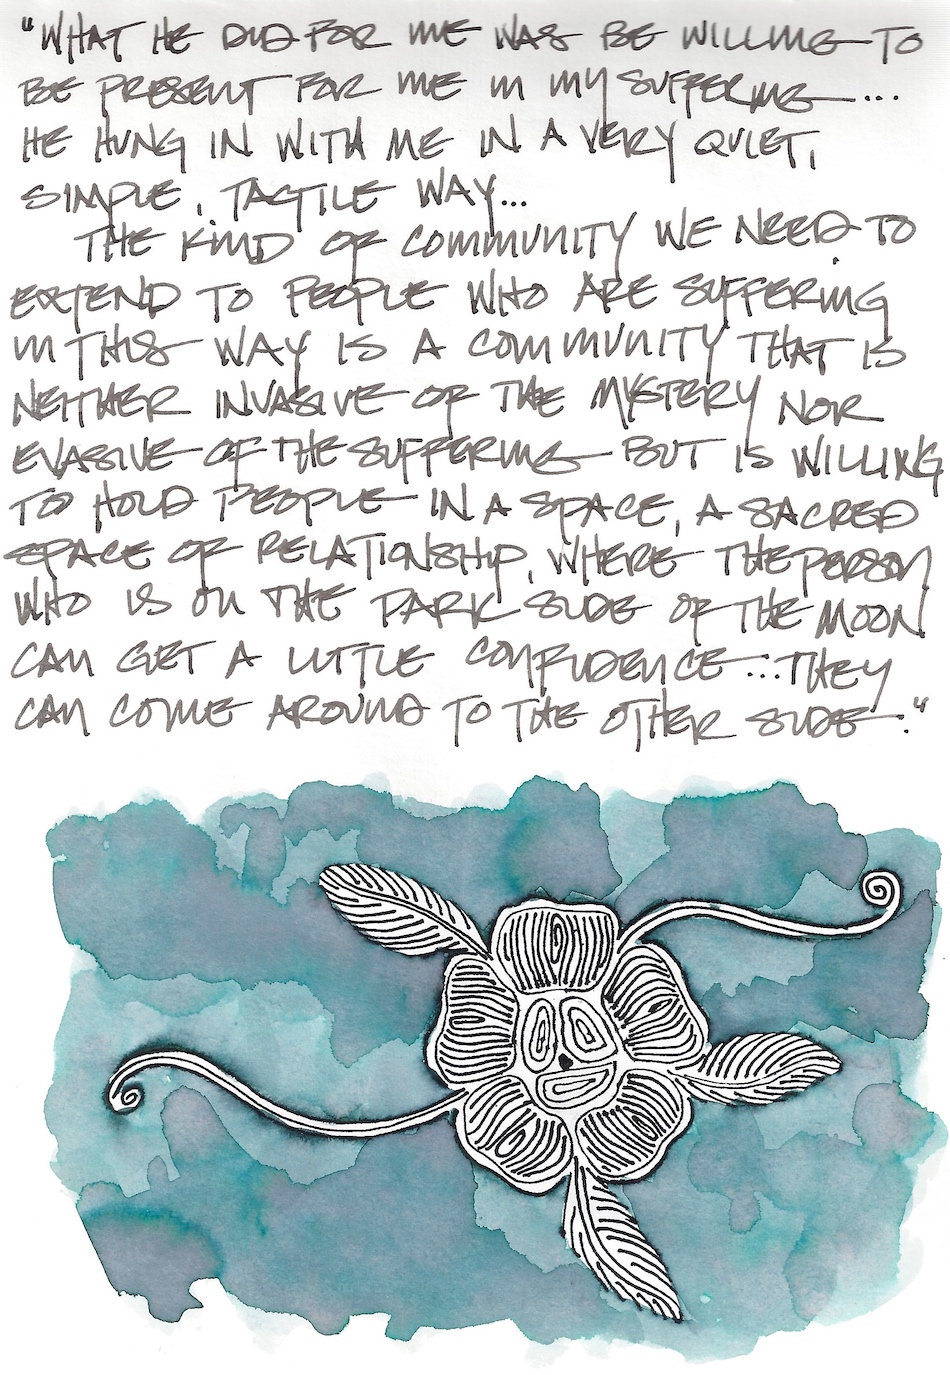 "WHAT HE DID FOR ME WAS BE WILLING TO
BE PRESENT FOR ME IN MY SUFFERING...
HE HUNG IN WITH ME IN A VERY QUIET,
SIMPLE, TACTILE WAY...
THE KIND OF COMMUNITY WE NEED TO
EXTEND TO PEOPLE WHO ARE SUFFERING
IN THIS WAY IS A COMMUNITY THAT IS
NEITHER INVASIVE OF THE MYSTERY NOR
EVASIVE OF THE SUFFERING BUT IS WILLING
TO HOLD PEOPLE IN A SPACE, A SACRED
SPACE OF RELATIONSHIP, WHERE THE PERSON
WHO IS ON THE DARK SIDE OF THE MOON
CAN GET A LITTLE CONFIDENCE...THEY
CAN COME AROUND TO THE OTHER SIDE."